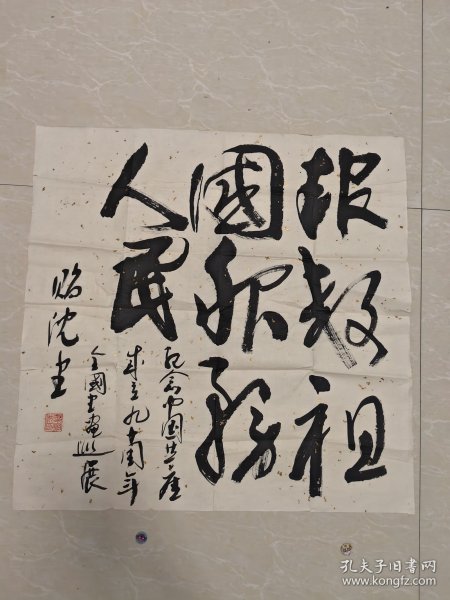 报效祖
國服務
人民
纪念中国共产
成立九十周年
全國书画巡展
贻沈书
孔夫子旧书网
www.kongfz.com